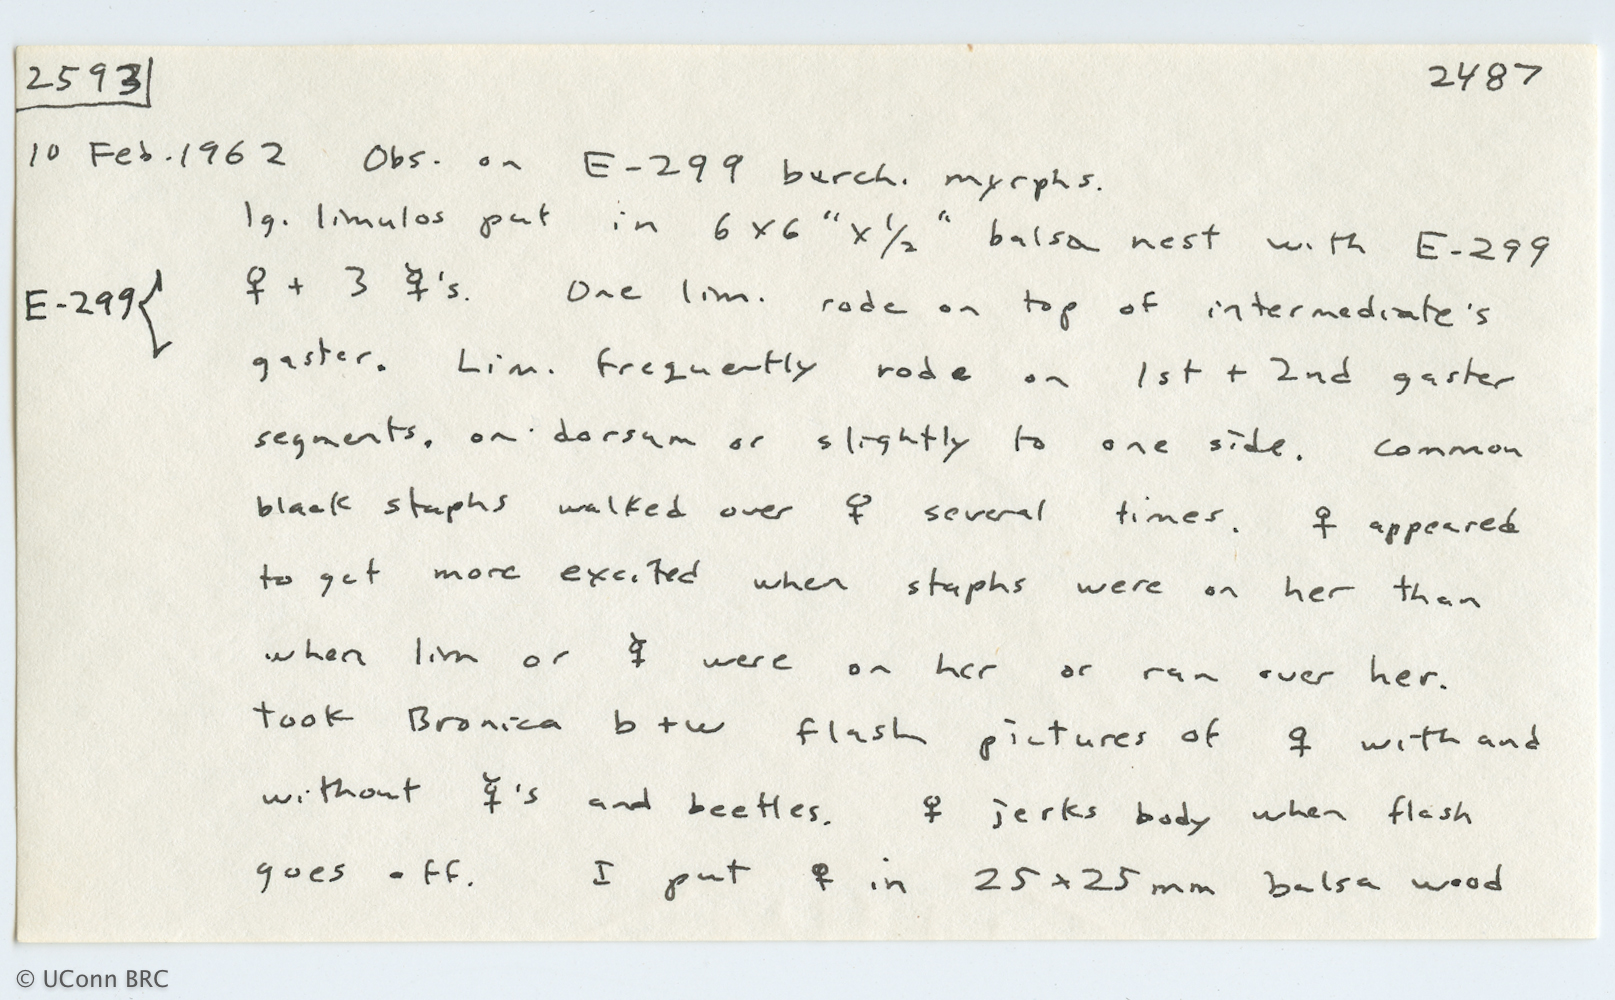 2593 2487
10 Feb. 1962 Obs. on E-299 burch. myrphs.
lg. limulos put in 6 x 6" x 1/2" balsa nest with E-299
E-299{ ♀ + 3 ☿'s. One lim. rode on top of intermediate's
gaster. Lim. frequently rode on 1st + 2nd gaster
segments, on dorsum or slightly to one side. Common
black staphs walked over ♀ several times. ♀ appeared
to get more excited when staphs were on her than
when lim or ☿ were on her or ran over her.
Took Bronica b+w flash pictures of ♀ with and
without ☿'s and beetles. ♀ jerks body when flash
goes off. I put ♀ in 25 x 25 mm balsa wood
© UConn BRC